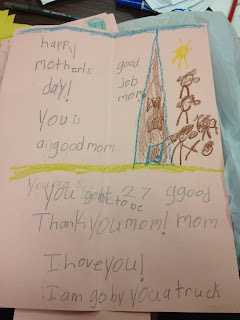 happy
mother's
day!
You is
a good mom
good
job
mom
you got 27 ggood
to be
Thank you mom! mom
I love you!
I am go by you a truck